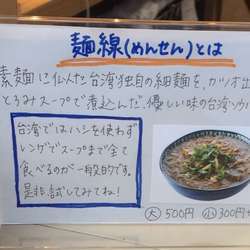 麺線(めんせん)とは
素麺に似んた台湾独自の細麺を、カツオ出
とろみスープで煮込んだ、優しい味の台湾ソウ
台湾ではハシを使わず
レンゲでスープまで全て
食べるのが一般的です。
是非試してみてね!
大 500円 小 300円